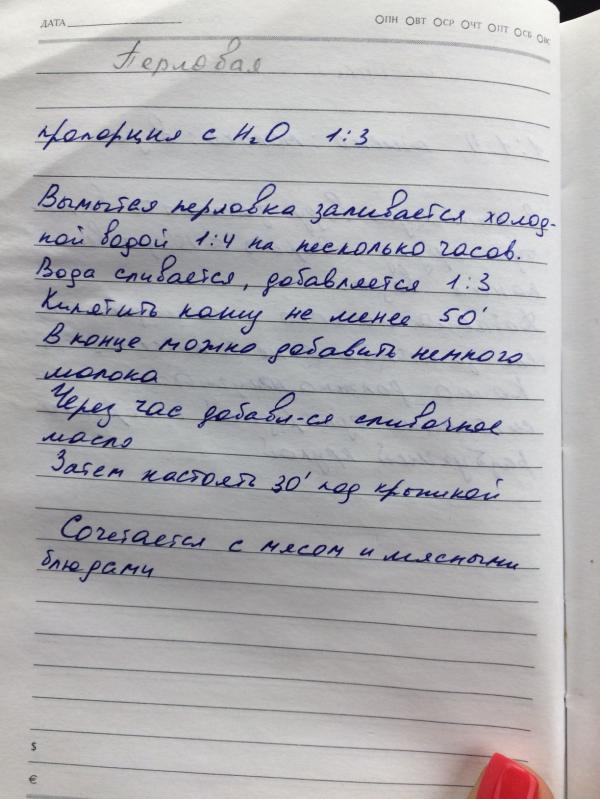 ДАТА
ПН ВТ СР ЧТ ПТ СБ ВС
Перловая
пропорция с H₂O 1:3
Вымытая перловка заливается холод-
ной водой 1:4 на несколько часов.
Вода сливается, добавляется 1:3
Кипятить кашу не менее 50'
В конце можно добавить немного
молока
Через час добавл-ся сливочное
масло
Затем настоять 30' под крышкой
Сочетается с мясом и мясными
блюдами
$
€